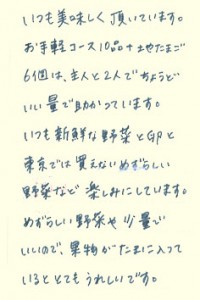 いつも美味しく頂いています。
お手軽コース10品+地たまご
6個は、主人と2人でちょうど
いい量で助かっています。
いつも新鮮な野菜とGPと
東京では買えないめずらしい
野菜など楽しみにしています。
めずらしい野菜や少量で
いいので、果物がたまに入って
いるととてもうれしいです。